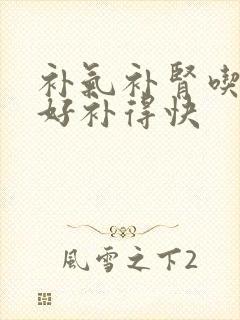 补氣补腎喫
好补得快
風雪之下2